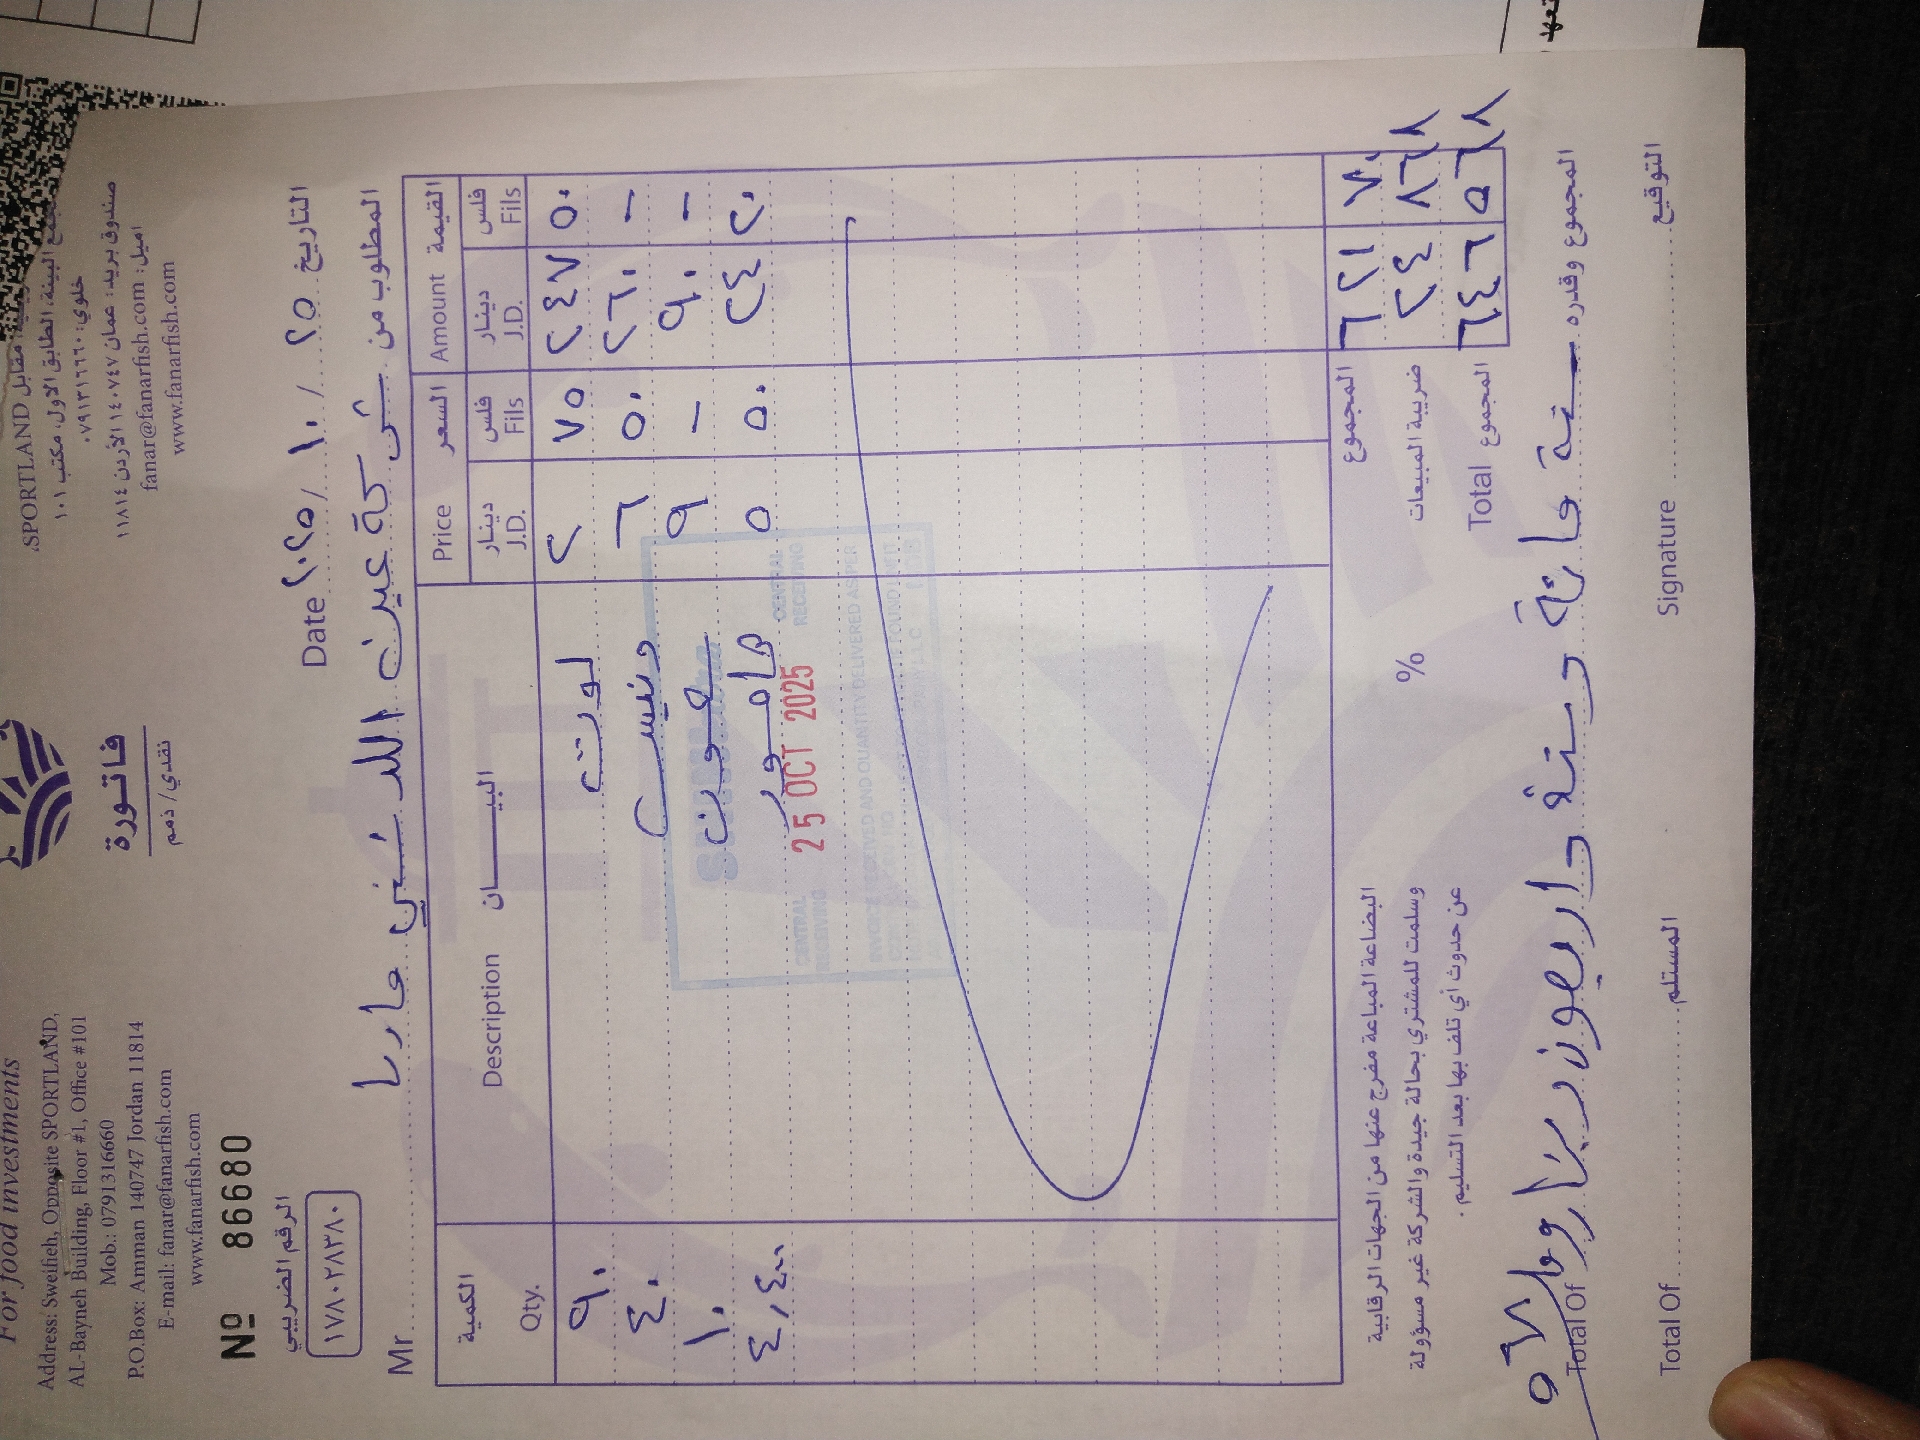 For food investments
Address: Sweifieh, Opposite SPORTLAND,
AL-Bayneh Building, Floor #1, Office #101
Mob.: 0791316660
P.O.Box: Amman 140747 Jordan 11814
E-mail: fanar@fanarfish.com
www.fanarfish.com
فاتورة
نقدي / ذمم
مقابل SPORTLAND.
مجمع البينة، الطابق الاول، مكتب ١٠١
خلوي: ٠٧٩١٣١٦٦٦٠
صندوق بريد: عمان ١٤٠٧٤٧ الأردن ١١٨١٤
اميل: fanar@fanarfish.com
www.fanarfish.com
Nº 86680
الرقم الضريبي
١٧٨٠٢٨٣٨٠
Date ٢٠٢٥ / ١٠ / ٢٥ التاريخ
Mr المطلوب من شركة عين اللسني مارينا
الكمية Qty. Description البيـــان Price السعر Amount القيمة
دينار J.D. فلس Fils دينار J.D. فلس Fils
٩٠ لوت ٢ ٧٥ ٢٤٧ ٥٠
٤٠ دنيس ٦ ٥٠ ٢٦٠ -
١٠ ٩ - ٩٠ -
٤,٤٠٠ هامور ٥ ٥٠ ٢٤ ٢٠
CENTRAL RECEIVING
25 OCT 2025
CENTRAL RECEIVING
المجموع ٦٢١ ٧٠
% ضريبة المبيعات ٢٤ ٨٦٨
Total المجموع ٦٤٦ ٥٦٨
البضاعة المباعة مفرج عنها من الجهات الرقابية
وسلمت للمشتري بحالة جيدة والشركة غير مسؤولة
عن حدوث أي تلف بها بعد التسليم.
Total Of المجموع وقدره ستة مائة وستة واربعون دينار و ٥٦٨
Total Of المستلم Signature التوقيع